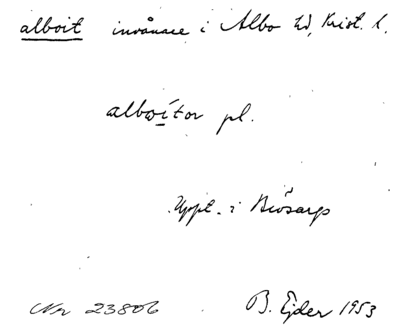 alboit invånare i Albo hd, Krist. l.
alboítor pl.
Uppt. i Brösarp
Nr 23806 B. Ejder 1953